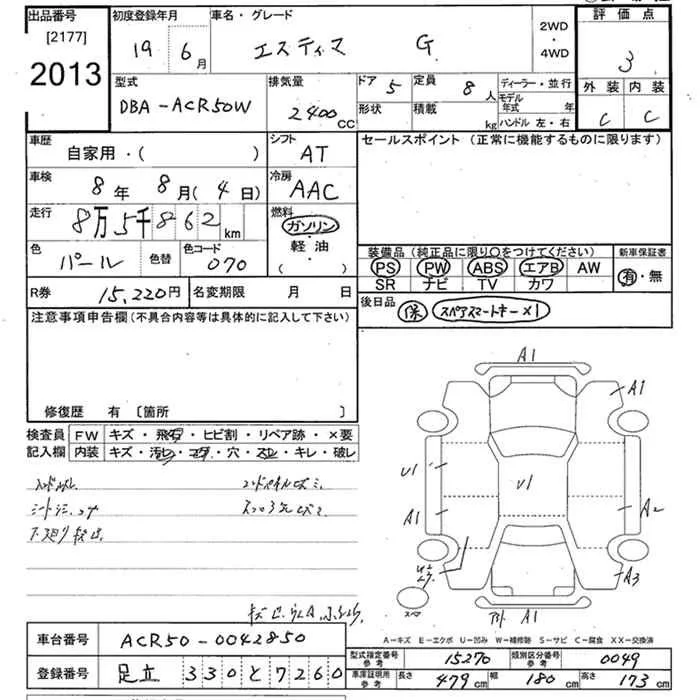 出品番号
[2177]
2013
初度登録年月
19 6月
車名・グレード
エスティマ G
2WD
・
4WD
評価点
3
外装 内装
C C
型式
DBA-ACR50W
排気量
2400cc
ドア 5
定員 8人
形状
積載 kg
ディーラー・並行
モデル年式 年
ハンドル 左・右
車歴
自家用・( )
シフト
AT
セールスポイント (正常に機能するものに限ります)
車検
8年 8月(4日)
冷房
AAC
走行
8万5千862km
燃料
ガソリン
軽油
(・)
色
パール
色替
色コード
070
装備品(純正品に限り〇をつけてください)
PS PW ABS エアB AW
SR ナビ TV カワ
新車保証書
有・無
R券 15,220円
名変期限 月 日
後日品
保 スペアスマートキー×1
注意事項申告欄(不具合内容等は具体的に記入して下さい)
修復歴 有 [箇所 ]
検査員記入欄
FW キズ・飛石・ヒビ割・リペア跡・×要
内装 キズ・汚レ・コゲ・穴・スレ・キレ・破レ
A1
A1
U1
U1
A1
A2
A3
A1
スペア
A-キズ E-エクボ U-凹み W-補修跡 S-サビ C-腐食 XX-交換済
車台番号 ACR50-0042850
登録番号 足立 330 と 7260
型式指定番号 参考 15270
類別区分番号 参考 0049
車庫証明用 参考 長さ 479cm 幅 180cm 高さ 173cm